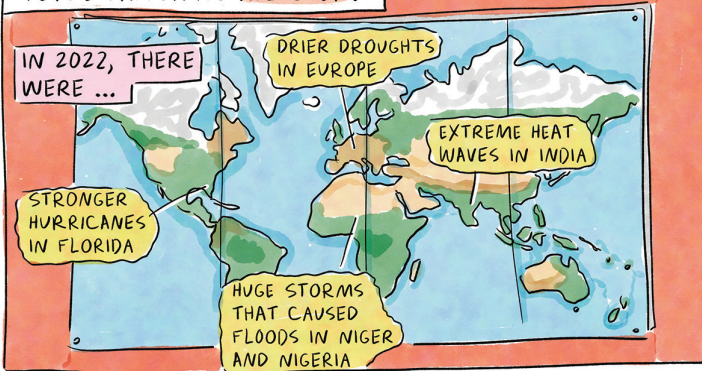 IN 2022, THERE
WERE ...
DRIER DROUGHTS
IN EUROPE
EXTREME HEAT
WAVES IN INDIA
STRONGER
HURRICANES
IN FLORIDA
HUGE STORMS
THAT CAUSED
FLOODS IN NIGER
AND NIGERIA